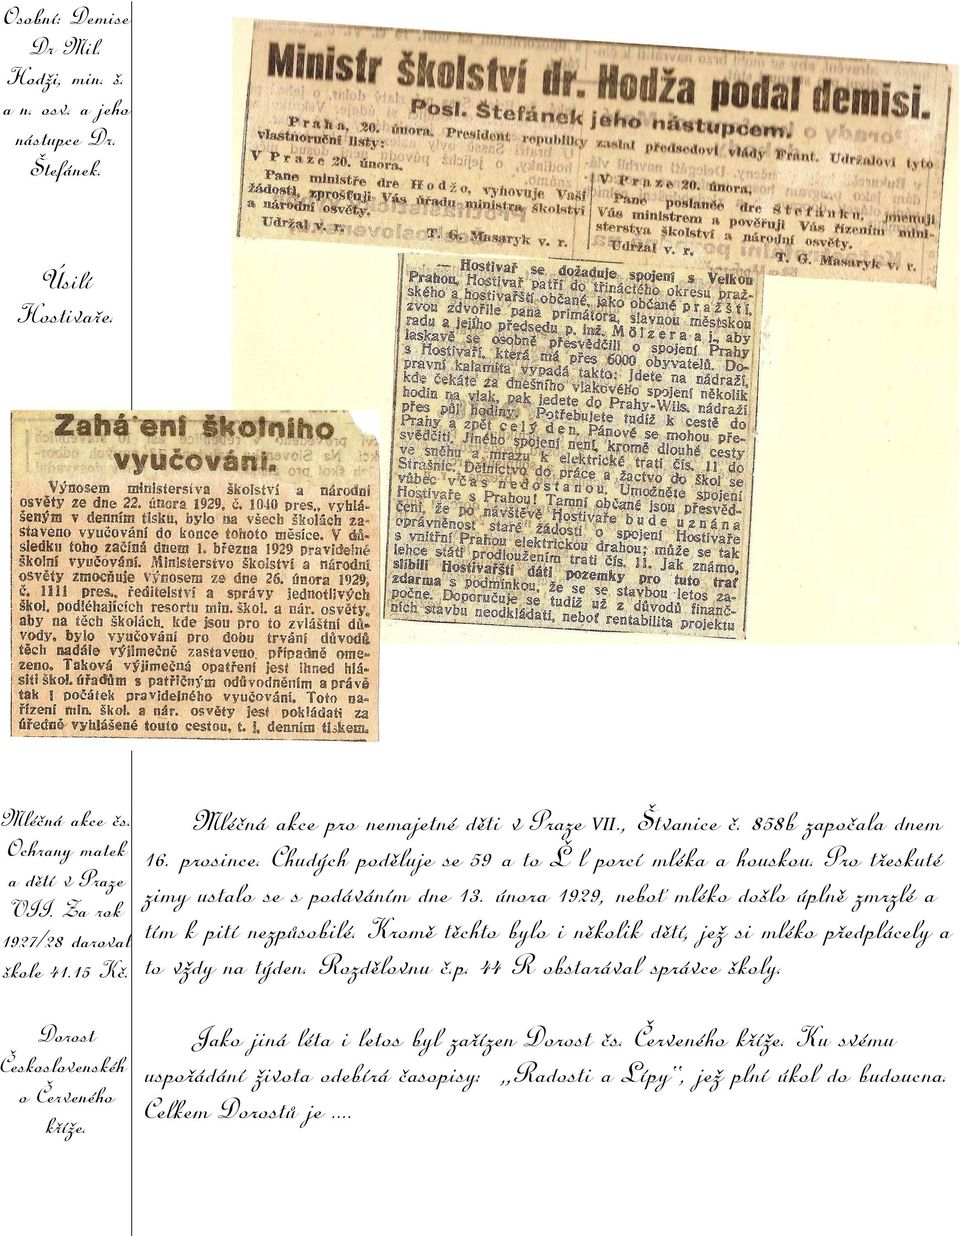 Osobní: Demise
Dr Mil.
Hodži, min. š.
a n. osv. a jeho
nástupce Dr.
Štefánek.
Ministr školství dr. Hodža podal demisi.
Posl. Štefánek jeho nástupcem.
Praha, 20. února. President republiky zaslal předsedovi vlády Frant. Udržalovi tyto
vlastnoruční listy:
V Praze 20. února.
Pane ministře dre Hodžo, vyhovuje Vaší
žádosti, zprošťuji Vás úřadu ministra školství
a národní osvěty.
Udržal v. r. T. G. Masaryk v. r.
V Praze 20. února.
Pane poslanče dre Štefánku, jmenuji
Vás ministrem a pověřuji Vás řízením mini-
sterstva školství a národní osvěty.
Udržal v. r. T. G. Masaryk v. r.
Úsilí
Hostivaře.
— Hostivař se dožaduje spojení s Velkou
Prahou. Hostivař patří do třináctého okresu praž-
ského a hostivařští občané, jako občané pražští,
zvou zdvořile pana primátora, slavnou městskou
radu a jejího předsedu p. inž. Mölzera a j., aby
laskavě se osobně přesvědčili o spojení Prahy
s Hostivaří, která má přes 6000 obyvatelů. Do-
pravní kalamita vypadá takto: Jdete na nádraží,
kde čekáte za dnešního vlakového spojení několik
hodin na vlak, pak jedete do Prahy-Wils. nádraží
přes půl hodiny. Potřebujete tudíž k cestě do
Prahy a zpět celý den. Pánové se mohou pře-
svědčiti. Jiného spojení není, kromě dlouhé cesty
ve sněhu a mrazu k elektrické trati čís. 11 do
Strašnic. Dělnictvo do práce a žactvo do škol se
vůbec včas nedostanou. Umožněte spojení
Hostivaře s Prahou! Tamní občané jsou přesvěd-
čeni, že po návštěvě Hostivaře bude uznána
oprávněnost staré žádosti o spojení Hostivaře
s vnitřní Prahou elektrickou drahou; může se tak
lehce státi prodloužením trati čís. 11. Jak známo,
slíbili Hostivařští dáti pozemky pro tuto trať
zdarma s podmínkou, že se se stavbou letos za-
počne. Doporučuje se tudíž už z důvodů finanč-
ních stavbu neodkládati, neboť rentabilita projektu
Zahá ení školního
vyučování.
Výnosem ministerstva školství a národní
osvěty ze dne 22. února 1929, č. 1040 pres., vyhlá-
šeným v denním tisku, bylo na všech školách za-
staveno vyučování do konce tohoto měsíce. V dů-
sledku toho začíná dnem 1. března 1929 pravidelné
školní vyučování. Ministerstvo školství a národní
osvěty zmocňuje výnosem ze dne 26. února 1929,
č. 1111 pres., ředitelství a správy jednotlivých
škol, podléhajících resortu min. škol. a nár. osvěty,
aby na těch školách, kde jsou pro to zvláštní dů-
vody, bylo vyučování pro dobu trvání důvodů
těch nadále výjimečně zastaveno, případně ome-
zeno. Taková výjimečná opatření jest ihned hlá-
siti škol. úřadům s patřičným odůvodněním a právě
tak i počátek pravidelného vyučování. Toto na-
řízení min. škol. a nár. osvěty jest pokládati za
úředně vyhlášené touto cestou, t. j. denním tiskem.
Mléčná akce čs.
Ochrany matek
a dětí v Praze
VII. Za rok
1927/28 daroval
škole 41.15 Kč.
Mléčná akce pro nemajetné děti v Praze VII., Štvanice č. 858b započala dnem
16. prosince. Chudých poděluje se 59 a to Ľ l porcí mléka a houskou. Pro třeskuté
zimy ustalo se s podáváním dne 13. února 1929, neboť mléko došlo úplně zmrzlé a
tím k pití nezpůsobilé. Kromě těchto bylo i několik dětí, jež si mléko předplácely a
to vždy na týden. Rozdělovnu č.p. 44 R obstarával správce školy.
Dorost
Československéh
o Červeného
kříže.
Jako jiná léta i letos byl zařízen Dorost čs. Červeného kříže. Ku svému
uspořádání života odebírá časopisy: „Radosti a Lípy", jež plní úkol do budoucna.
Celkem Dorostů je ....